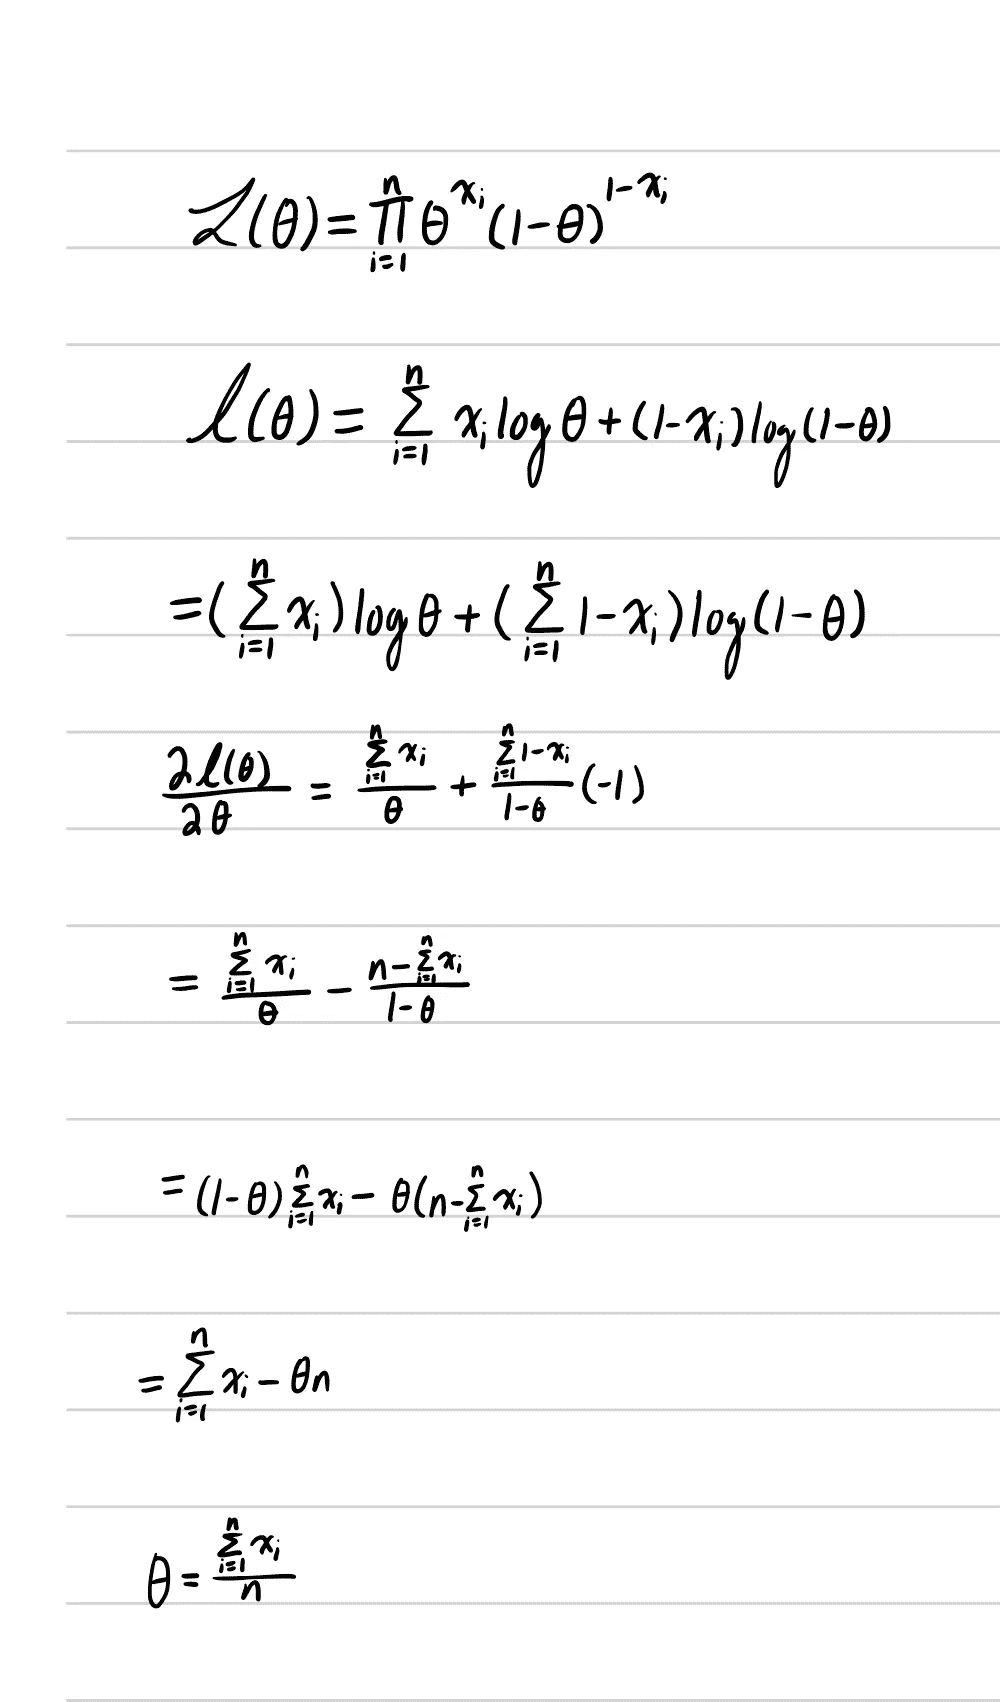 L(θ) = ∏_{i=1}^{n} θ^{x_i} (1-θ)^{1-x_i}
ℓ(θ) = ∑_{i=1}^{n} x_i log θ + (1-x_i) log(1-θ)
= (∑_{i=1}^{n} x_i) log θ + (∑_{i=1}^{n} 1-x_i) log(1-θ)
∂ℓ(θ)/∂θ = (∑_{i=1}^{n} x_i)/θ + (∑_{i=1}^{n} 1-x_i)/(1-θ) (-1)
= (∑_{i=1}^{n} x_i)/θ - (n-∑_{i=1}^{n} x_i)/(1-θ)
= (1-θ) ∑_{i=1}^{n} x_i - θ(n-∑_{i=1}^{n} x_i)
= ∑_{i=1}^{n} x_i - θn
θ = (∑_{i=1}^{n} x_i)/n